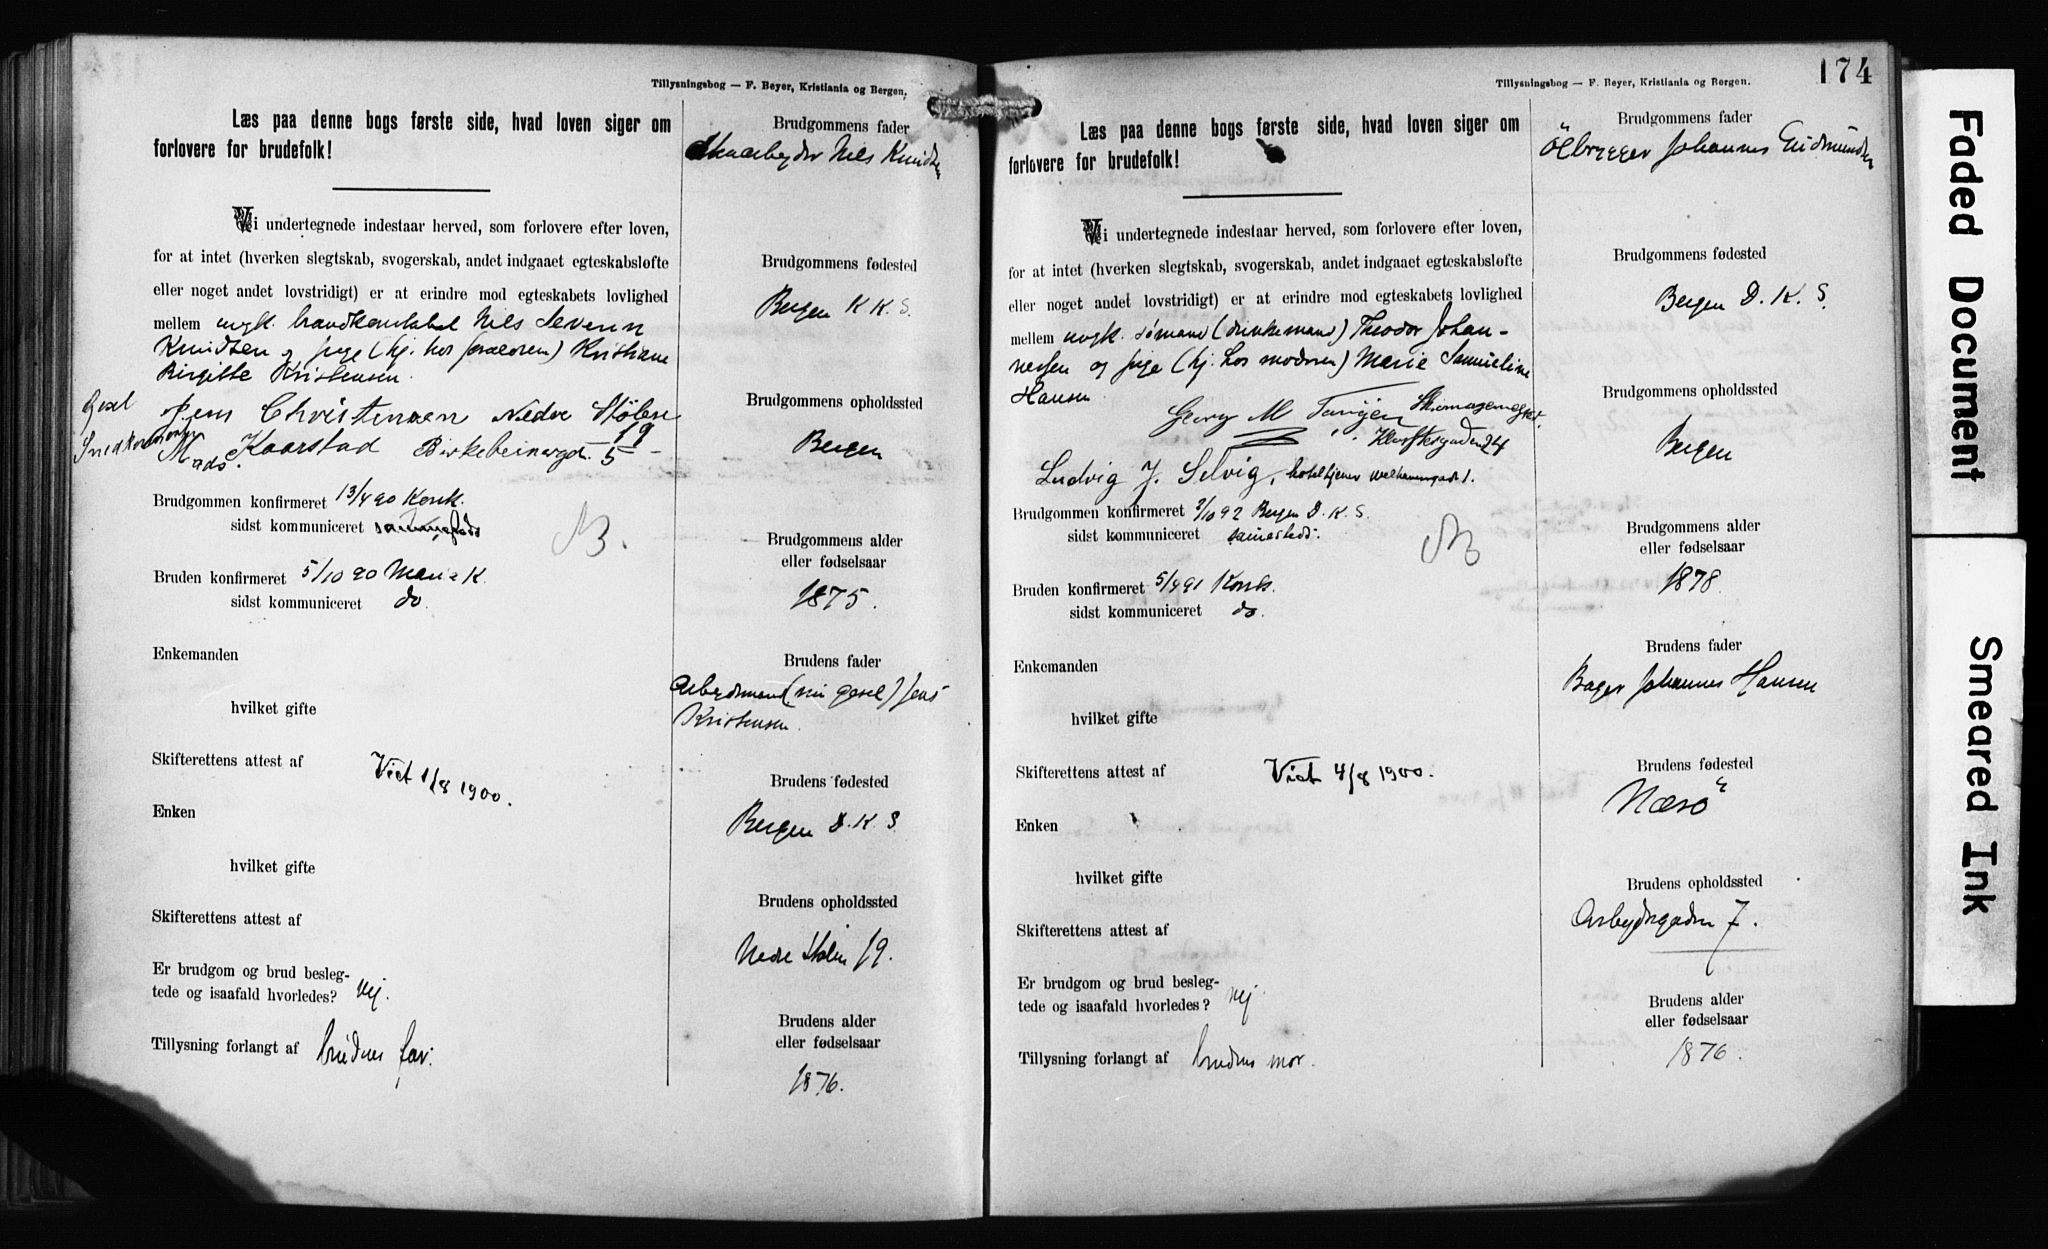 Tillysningsbog — F. Beyer, Kristiania og Bergen.
Læs paa denne bogs første side, hvad loven siger om
forlovere for brudefolk!
Vi undertegnede indestaar herved, som forlovere efter loven,
for at intet (hverken slegtskab, svogerskab, andet indgaaet egteskabsløfte
eller noget andet lovstridigt) er at erindre mod egteskabets lovlighed
mellem ungk. brandkonstabel Nils Severin
Knudsen og pige (hj. hos forældren) Kristiane
Birgitte Kristensen.
Gesel Jens Christensen Nedre Stølen 19
Mads Kaarstad Birkebeinergd. 5
Brudgommen konfirmeret 13/4 90 Korsk.
sidst kommuniceret sammesteds
Bruden konfirmeret 5/10 90 Mariæ K.
sidst kommuniceret do
NB.
Enkemanden
hvilket gifte
Skifterettens attest af
Viet 1/8 1900.
Enken
hvilket gifte
Skifterettens attest af
Er brudgom og brud beslegtede og isaafald hvorledes? Nej.
Tillysning forlangt af brudens far.
Brudgommens fader
Skoarbejder Nils Knudsen
Brudgommens fødested
Bergen K. K. S.
Brudgommens opholdssted
Bergen
Brudgommens alder
eller fødselsaar
1875.
Brudens fader
Arbejdsmand (nu gesel) Jens
Kristensen
Brudens fødested
Bergen D. K. S.
Brudens opholdssted
Nedre Stølen 19.
Brudens alder
eller fødselsaar
1876.
174
Tillysningsbog — F. Beyer, Kristiania og Bergen.
Læs paa denne bogs første side, hvad loven siger om
forlovere for brudefolk!
Vi undertegnede indestaar herved, som forlovere efter loven,
for at intet (hverken slegtskab, svogerskab, andet indgaaet egteskabsløfte
eller noget andet lovstridigt) er at erindre mod egteskabets lovlighed
mellem ungk. sømand (dunkemand) Theodor Johan-
nessen og pige (hj. hos moderen) Marie Samueline
Hansen
Georg M Skomagermester
24
Ludvig J. Selvig, hoteltjener Welhavensgade 1.
Brudgommen konfirmeret 2/10 92 Bergen D. K. S.
sidst kommuniceret sammesteds.
Bruden konfirmeret 5/4 91 Korsk.
sidst kommuniceret do.
NB
Enkemanden
hvilket gifte
Skifterettens attest af
Viet 4/8 1900.
Enken
hvilket gifte
Skifterettens attest af
Er brudgom og brud besleg-
tede og isaafald hvorledes? Nej
Tillysning forlangt af brudens mor.
Brudgommens fader
Ølbrygger Johannes Gudmundsen
Brudgommens fødested
Bergen D. K. S.
Brudgommens opholdssted
Bergen
Brudgommens alder
eller fødselsaar
1878.
Brudens fader
Bager Johannes Hansen
Brudens fødested
Næsø
Brudens opholdssted
Arbejdergaden 7.
Brudens alder
eller fødselsaar
1876.
Faded Document
Smeared Ink